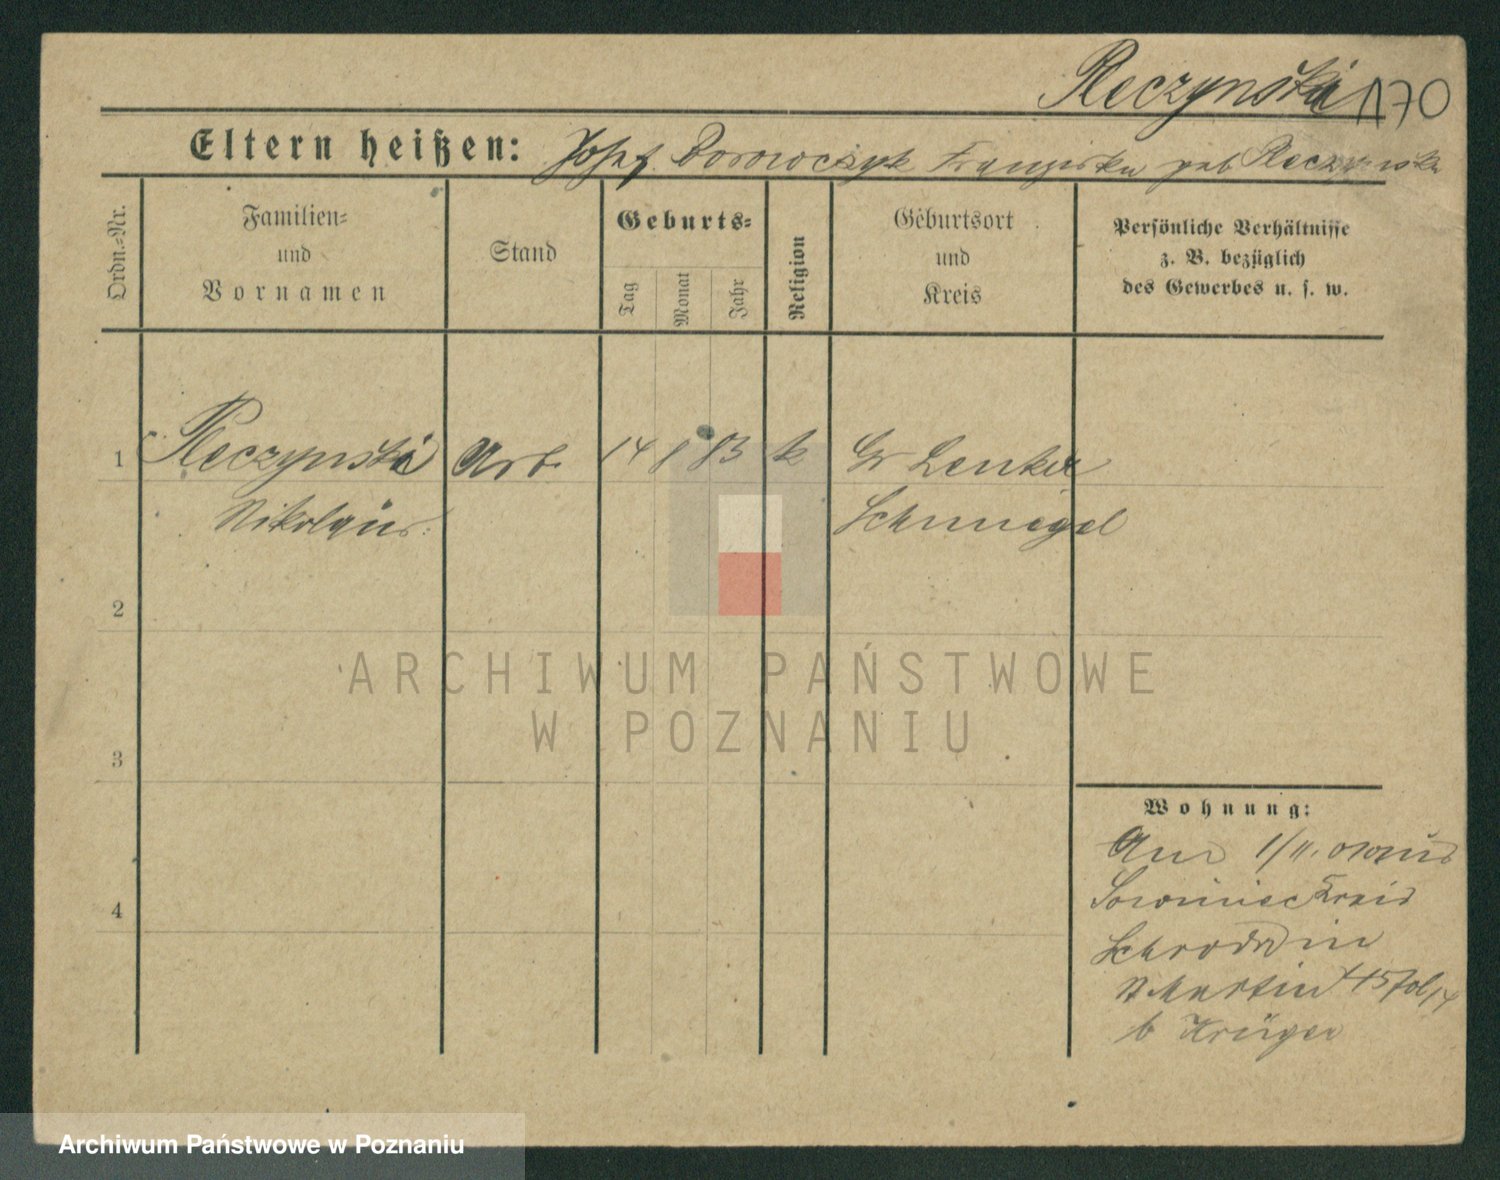 Reczynski 170
Eltern heißen: Josef Borowczyk Franziska geb Reczynska
Ordn.-Nr.
Familien-
und
Vornamen
Stand
Geburts-
Tag
Monat
Jahr
Religion
Geburtsort
und
Kreis
Persönliche Verhältnisse
z. B. bezüglich
des Gewerbes u. s. w.
1 Reczynski Arb. 14 83 k Gr Lenker
Nikolaus Schmiegel
2
ARCHIWUM PAŃSTWOWE
W POZNANIU
3
Wohnung:
1/11.
Kreis
4
Schroda in
St Martin 45
b Krüger
Archiwum Państwowe w Poznaniu